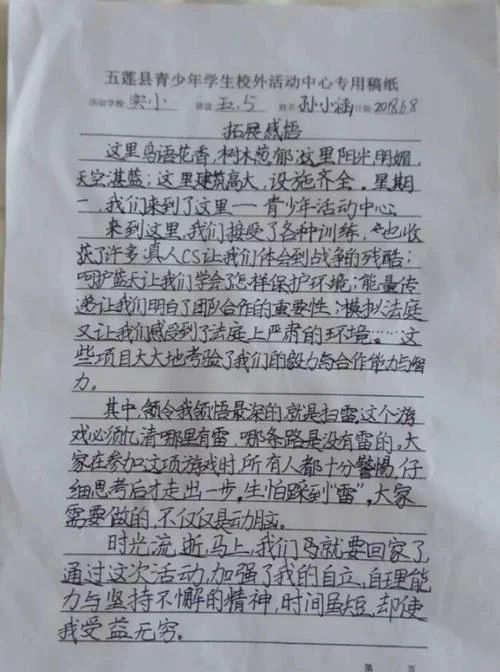 五莲县青少年学生校外活动中心专用稿纸
活动学校 实小 班级 五.5 姓名 孙小涵 日期 2018.6.8
拓展感悟
这里鸟语花香，树木葱郁；这里阳光明媚，
天空湛蓝；这里建筑高大，设施齐全。星期
一，我们来到了这里——青少年活动中心。
来到这里，我们接受了各种训练，也收
获了许多。真人CS让我们体会到战争的残酷；
呵护蓝天让我们学会了怎样保护环境；能量传
递让我们明白了团队合作的重要性；模拟法庭
又让我们感受到了法庭上严肃的环境……这
些项目大大地考验了我们的毅力与合作能力与智
力。
其中，领令我领悟最深的，就是扫雷。这个游
戏必须忆清哪里有雷，哪条路是没有雷的。大
家在参加这项游戏时，所有人都十分警惕，仔
细思考后才走出一步，生怕踩到“雷”。大家
需要做的，不仅仅是动脑。
时光流逝，马上，我们马就要回家了，
通过这次活动，加强了我的自立、自理能
力与坚持不懈的精神，时间虽短，却使
我受益无穷。
第 页